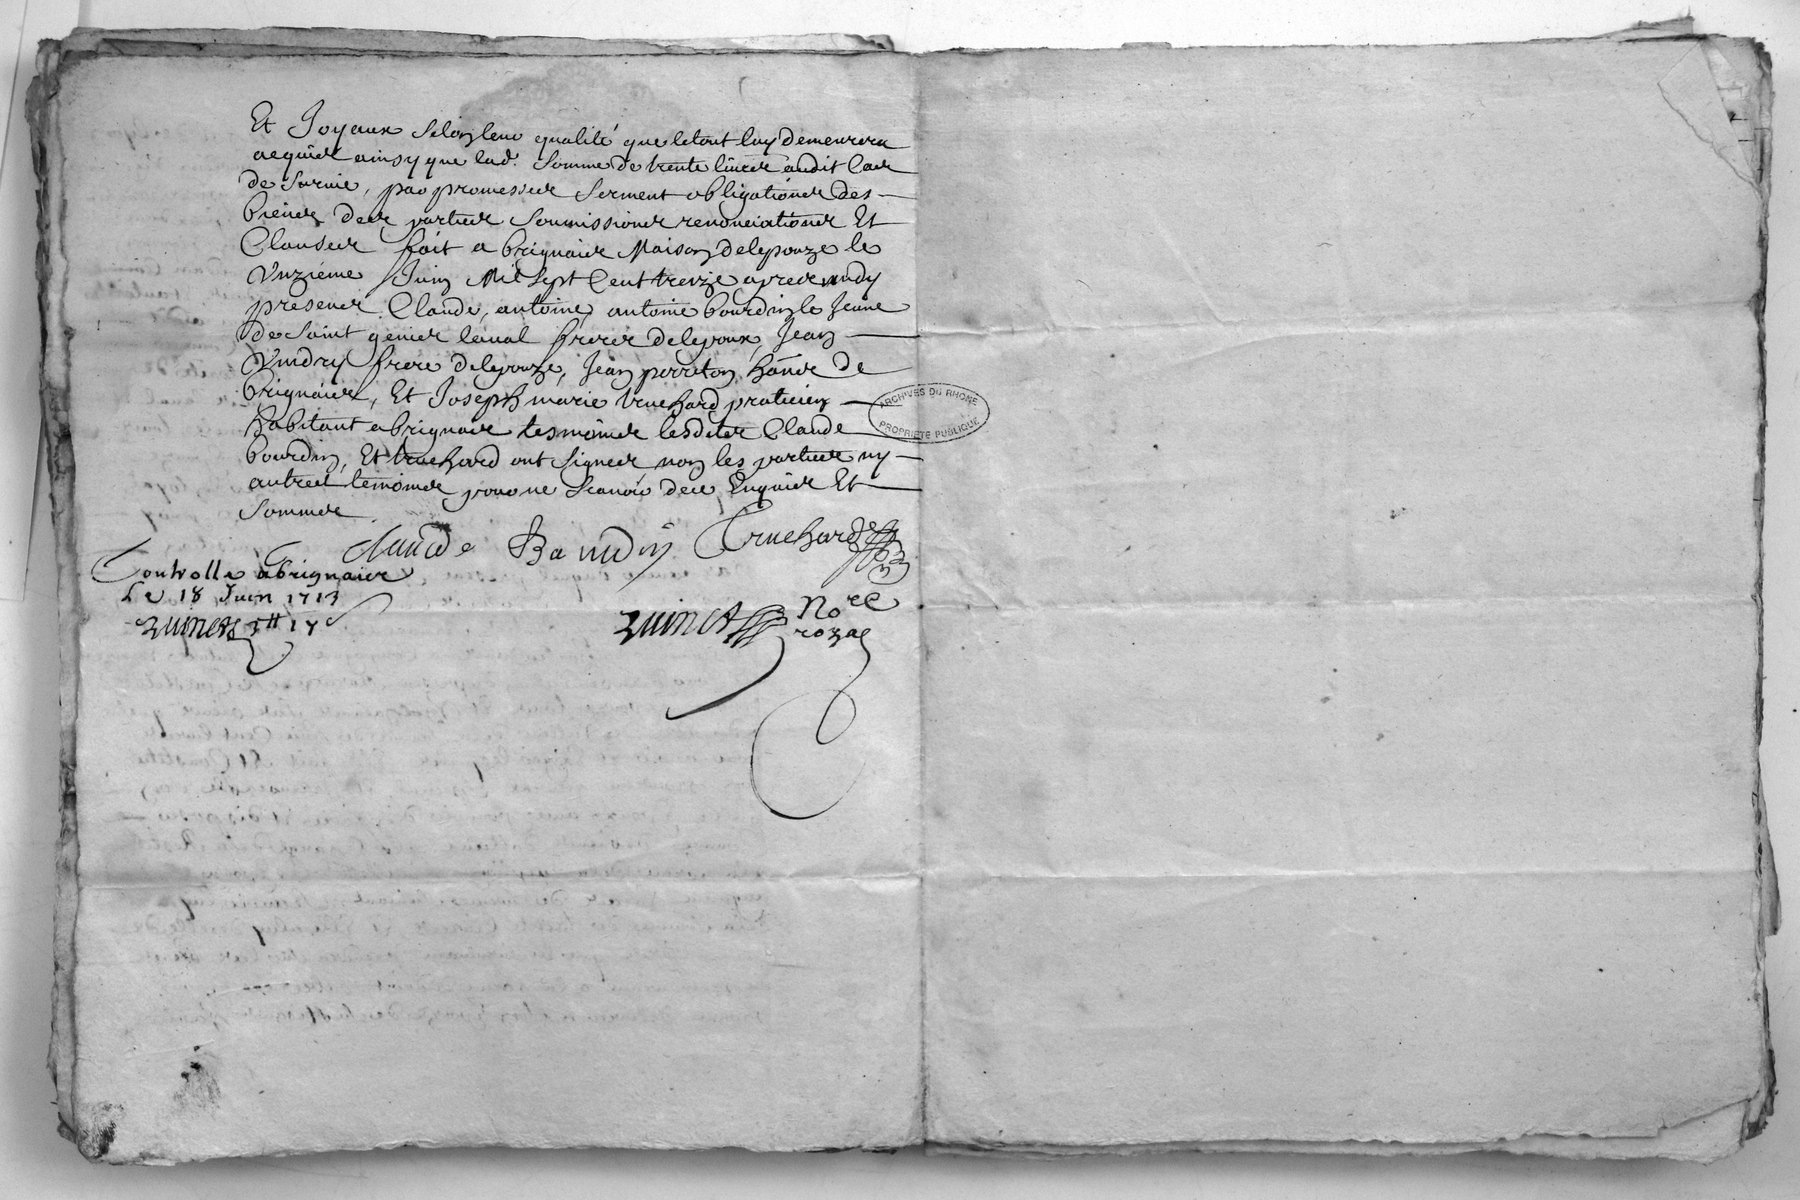 Et Joyaux selon leur qualité que le tout luy demeurera
acquier ainsy que lad. somme de trente livres audit cas
de survie, par promesses serment obligations des
biens des parties soumissions renonciations Et
Clauses fait a brignais Maison de lepouze le
Unzieme Juin Mil sept Cent treize apres midy
presens Claude, antoine, antoine bourdin le Jeune
de saint genies laval freres delepoux, Jean
Vindry frere delepouze, Jean perreton, de
brignais, Et Joseph marie truchard praticien
habitant a brignais tesmoins lesdites Claude
bourdin, Et truchard ont signes non les parties ny
autres temoins pour ne scavoir de ce Enquis Et
sommes
claude Bourdin Truchard
Controlle a brignais
Le 18 Juin 1713
No.re
rozal
ARCHIVES DU RHONE
PROPRIETE PUBLIQUE